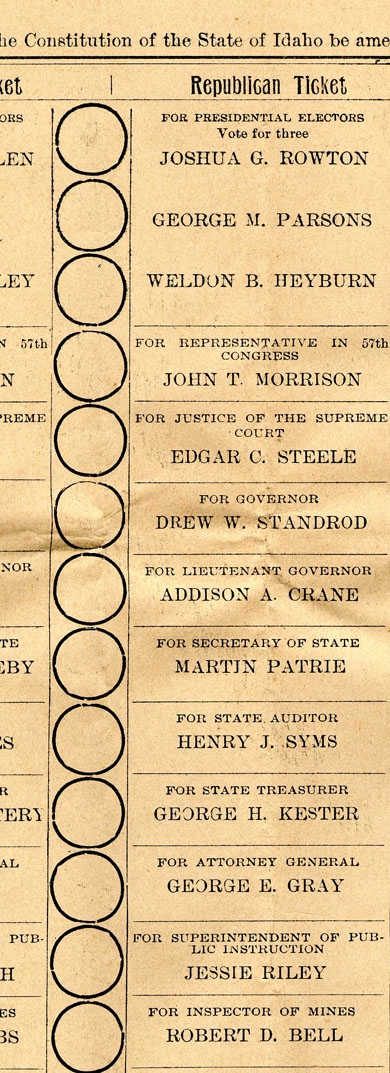 he Constitution of the State of Idaho be ame
ket
Republican Ticket
ORS
FOR PRESIDENTIAL ELECTORS
Vote for three
LEN
JOSHUA G. ROWTON
GEORGE M. PARSONS
LEY
WELDON B. HEYBURN
N 57th
FOR REPRESENTATIVE IN 57th
CONGRESS
N
JOHN T. MORRISON
PREME
FOR JUSTICE OF THE SUPREME
COURT
EDGAR C. STEELE
FOR GOVERNOR
DREW W. STANDROD
NOR
FOR LIEUTENANT GOVERNOR
ADDISON A. CRANE
TE
FOR SECRETARY OF STATE
EBY
MARTIN PATRIE
FOR STATE AUDITOR
ES
HENRY J. SYMS
R
FOR STATE TREASURER
TERY
GEORGE H. KESTER
AL
FOR ATTORNEY GENERAL
GEORGE E. GRAY
PUB-
FOR SUPERINTENDENT OF PUB-
LIC INSTRUCTION
H
JESSIE RILEY
ES
FOR INSPECTOR OF MINES
BS
ROBERT D. BELL